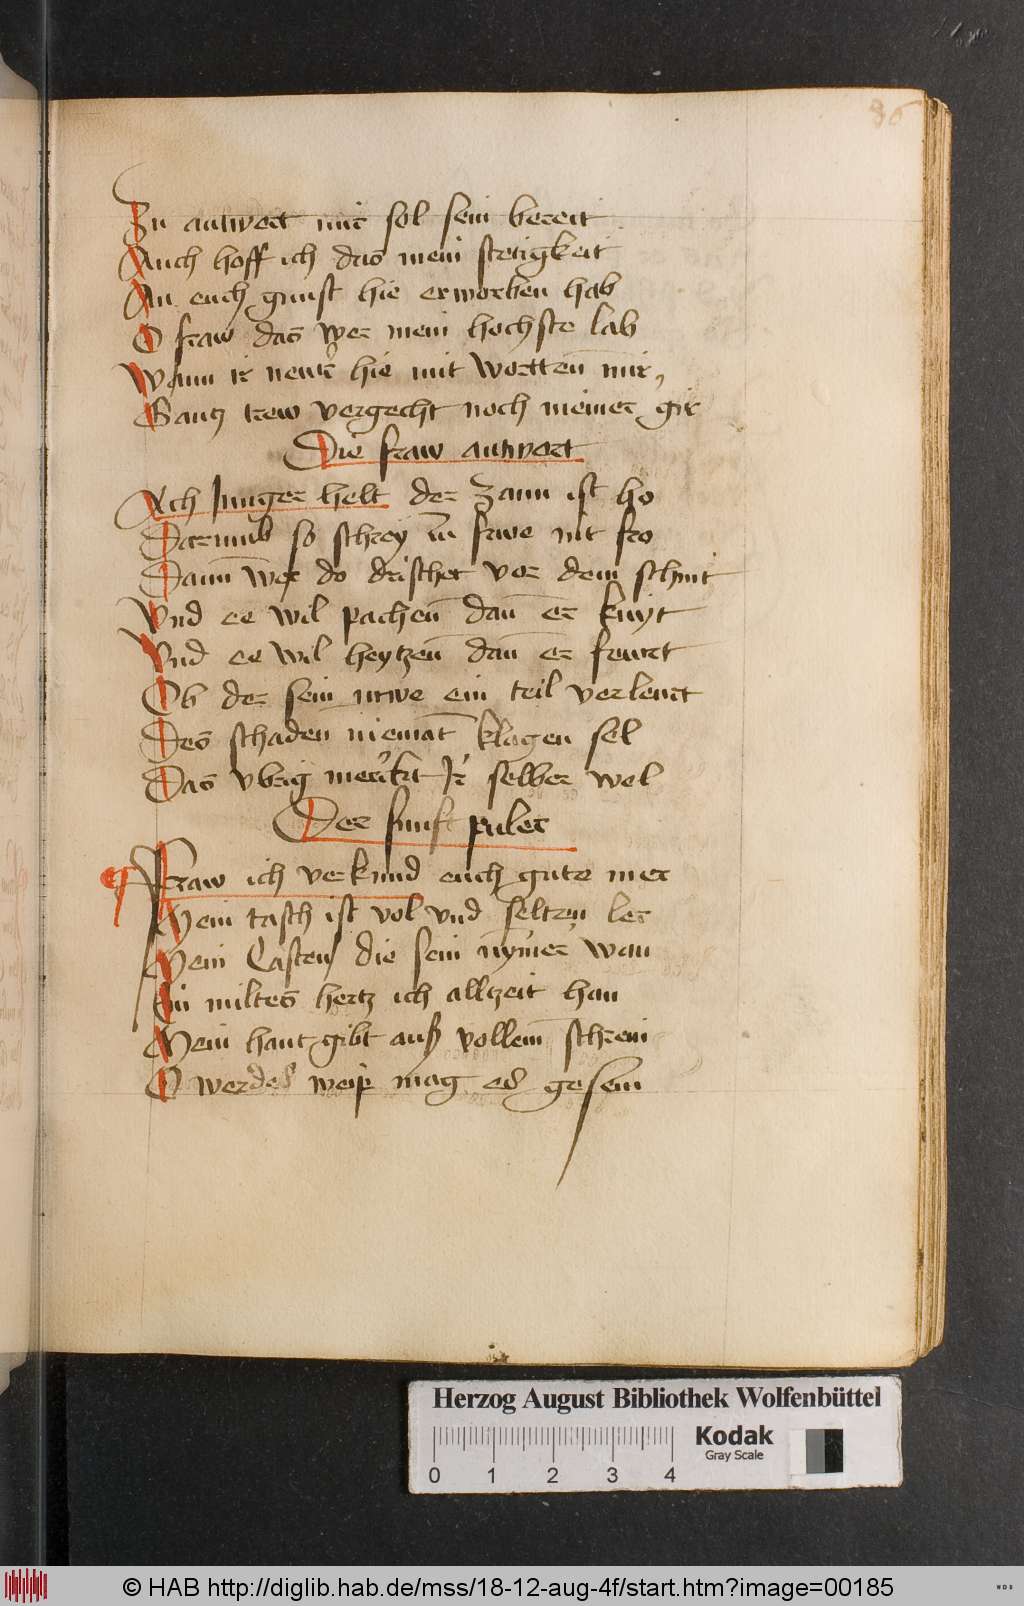 86
Zu antwort mir sol sein bereit
Auch hoff ich das mein stetigkeit
An euch gunst hie erworben hab
O fraw das wer mein hochste lab
Wann ir neur hie mit wortten̄ mir,
Gantz trew vergecht noch meiner gir
Die fraw antwort
Ach Junger helt der Zaun ist ho
Darumb so schrey in frwe nit fro
Dann̄ wer do drischet vor dem schnit
Vnd ee wil pachen̄ dan̄ er knyt
Vnd ee wil heytzen̄ dan̄ er feurt
Ob der sein mwe ein teil verleurt
Des schaden niemāt klagen sol
Das vbrig merckt Ir selber wol
Der funft puler
Fraw ich verkund euch gute mer
Mein tasch ist vol vnd selten ler
Mein Casten die sein nymer wan
Ein miltes hertz ich alltzeit han
Mein hant gibt auß vollem schrein
O werdes weip mag es gesein
Herzog August Bibliothek Wolfenbüttel
Kodak
Gray Scale
0 1 2 3 4
© HAB http://diglib.hab.de/mss/18-12-aug-4f/start.htm?image=00185